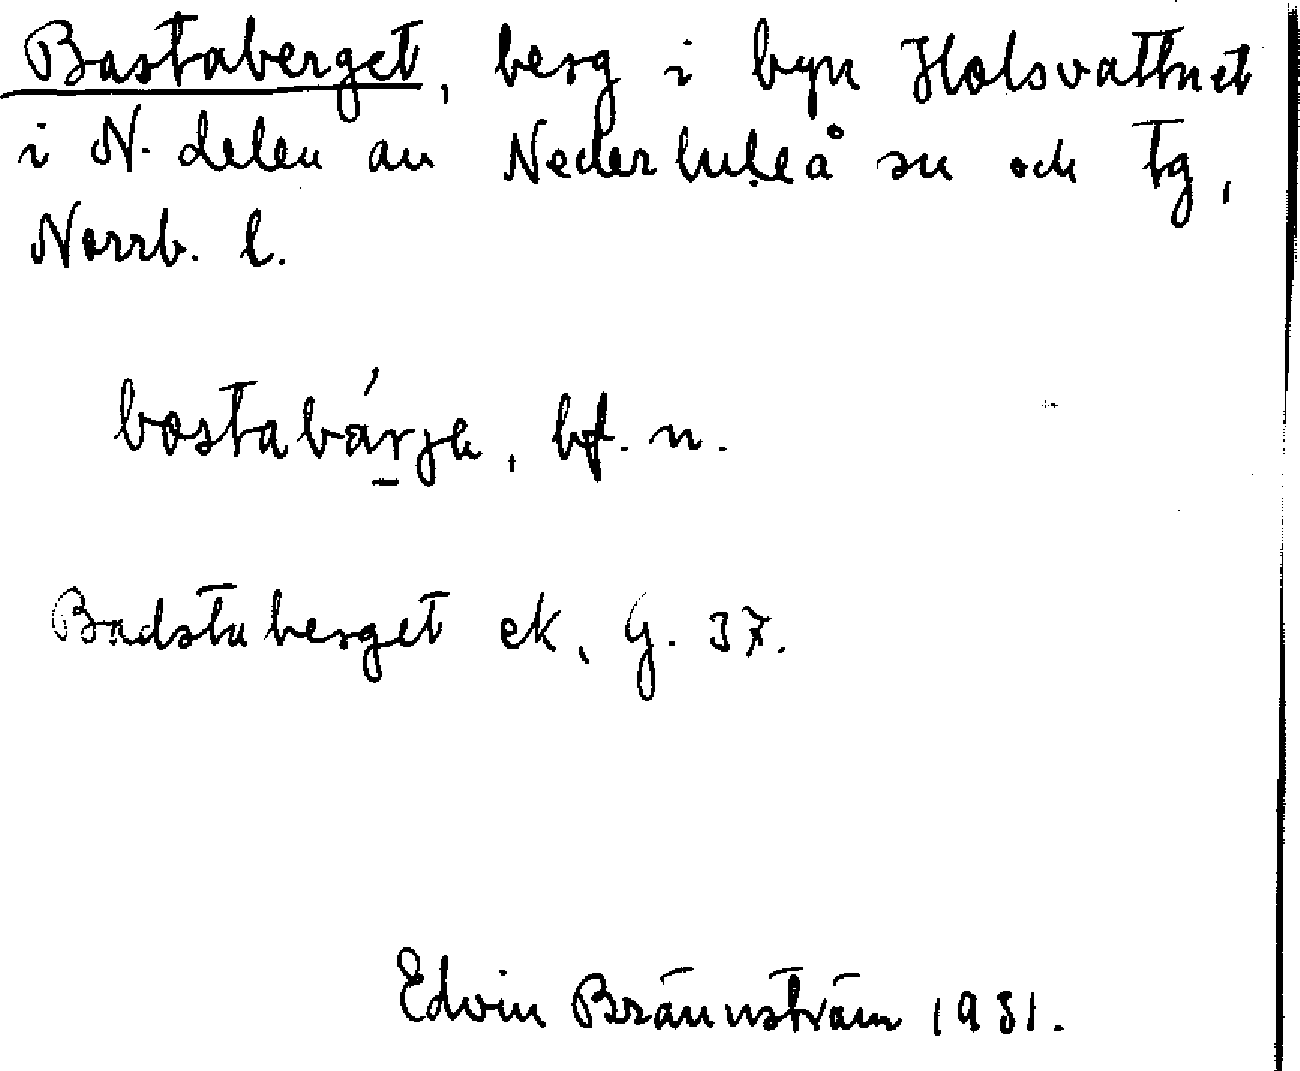 Bastaberget, berg i byn Holsvattnet
i N. delen av Nederluleå sn och tg,
Norrb. l.
bastabárjə, bf. n.
Badstuberget ek, G. 37.
Edvin Brännström 1931.